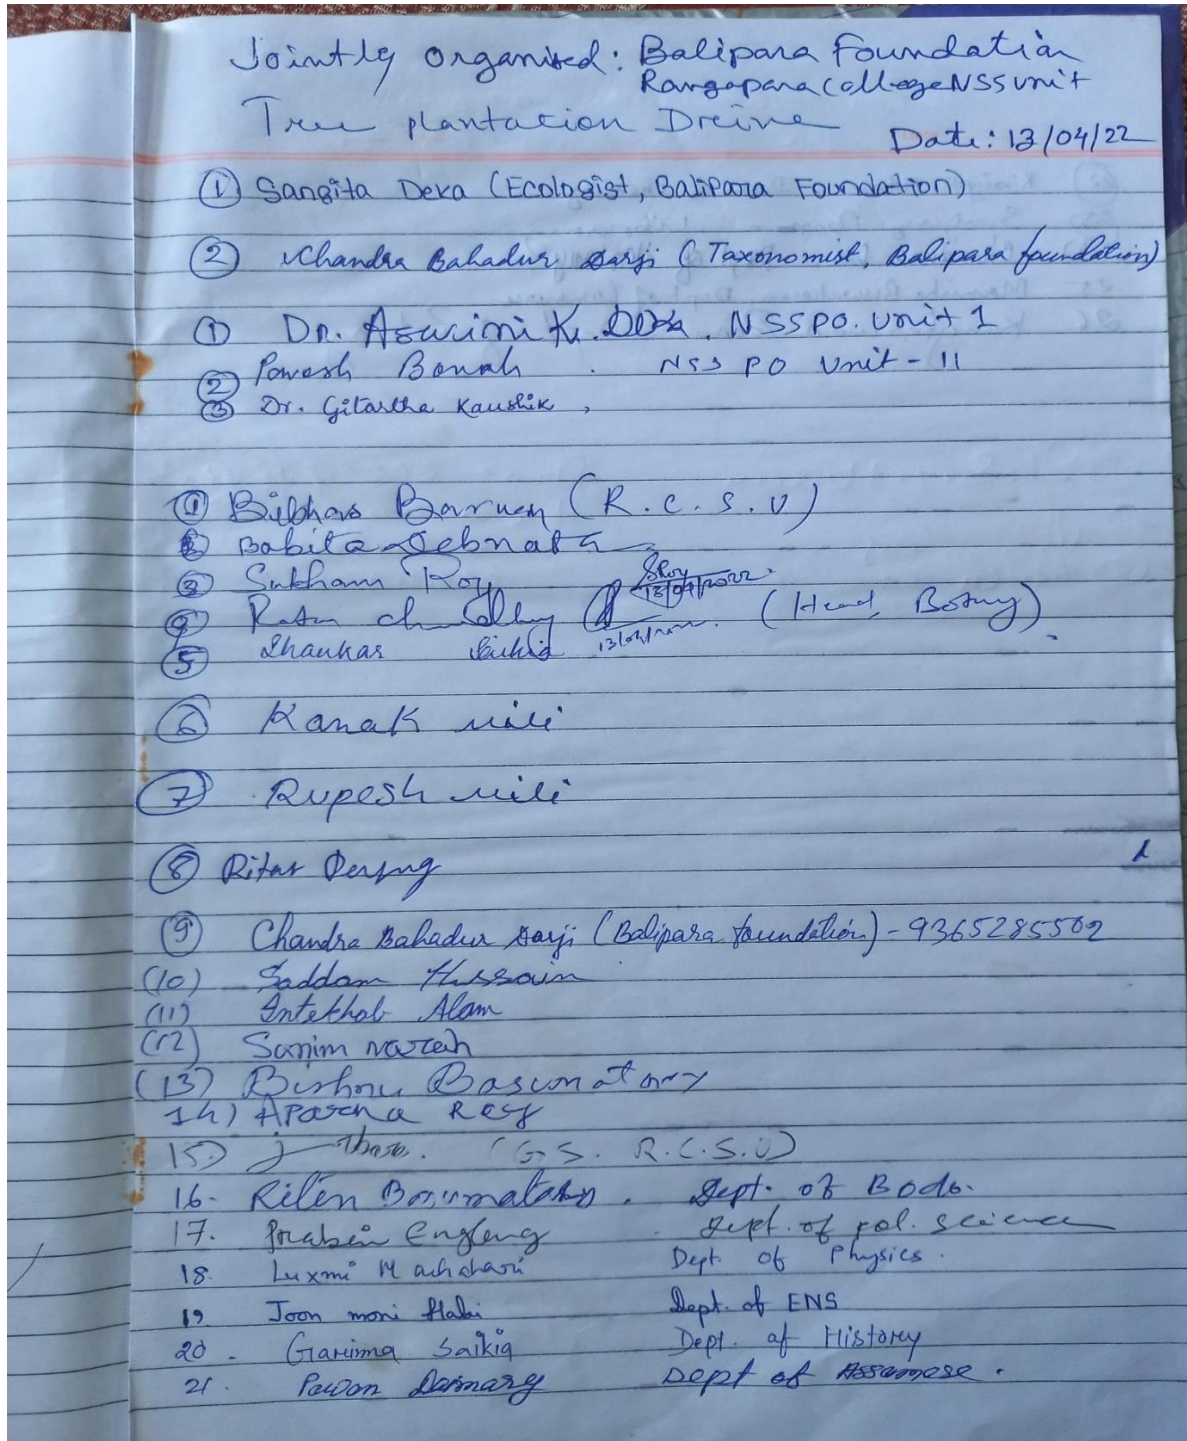 Jointly Organised: Balipara Foundation
Rangapara College NSS unit
Tree plantation Dreive
Date: 13/04/22
① Sangita Deka (Ecologist, Balipara Foundation)
② Chandra Bahadur Darji (Taxonomist, Balipara foundation)
① Dr. Aswini K. Deka. NSSPO. Unit 1
② Powesh Borah. NSS PO Unit - II
③ Dr. Gitartha Kaushik,
① Bibhas Baruah (R.C.S.U)
② Babita Debnath
③ Subham Roy SRoy 13/04/2022.
④ Ratan 13/04/2022. (Head, Botany).
⑤ Shankar
⑥ Kanak mili
⑦ Rupesh mili
⑧ Ritus
⑨ Chandra Bahadur Darji (Balipara foundation) - 9365285502
(10) Saddam Hussain
(11) Intekhab Alam
(12) Sanjim Narah
(13) Bishnu Basumatary
14) Aparna Roy
15) (G.S. R.C.S.U)
16. Riten Basumatary. Dept. of Bodo.
17. Prabin Engleng Dept. of pol. science
18. Luxmi Machahari Dept. of Physics.
19. Joon moni Dept. of ENS
20. Garima Saikia Dept. of History
21. Pawan Daimary Dept of Assamese.